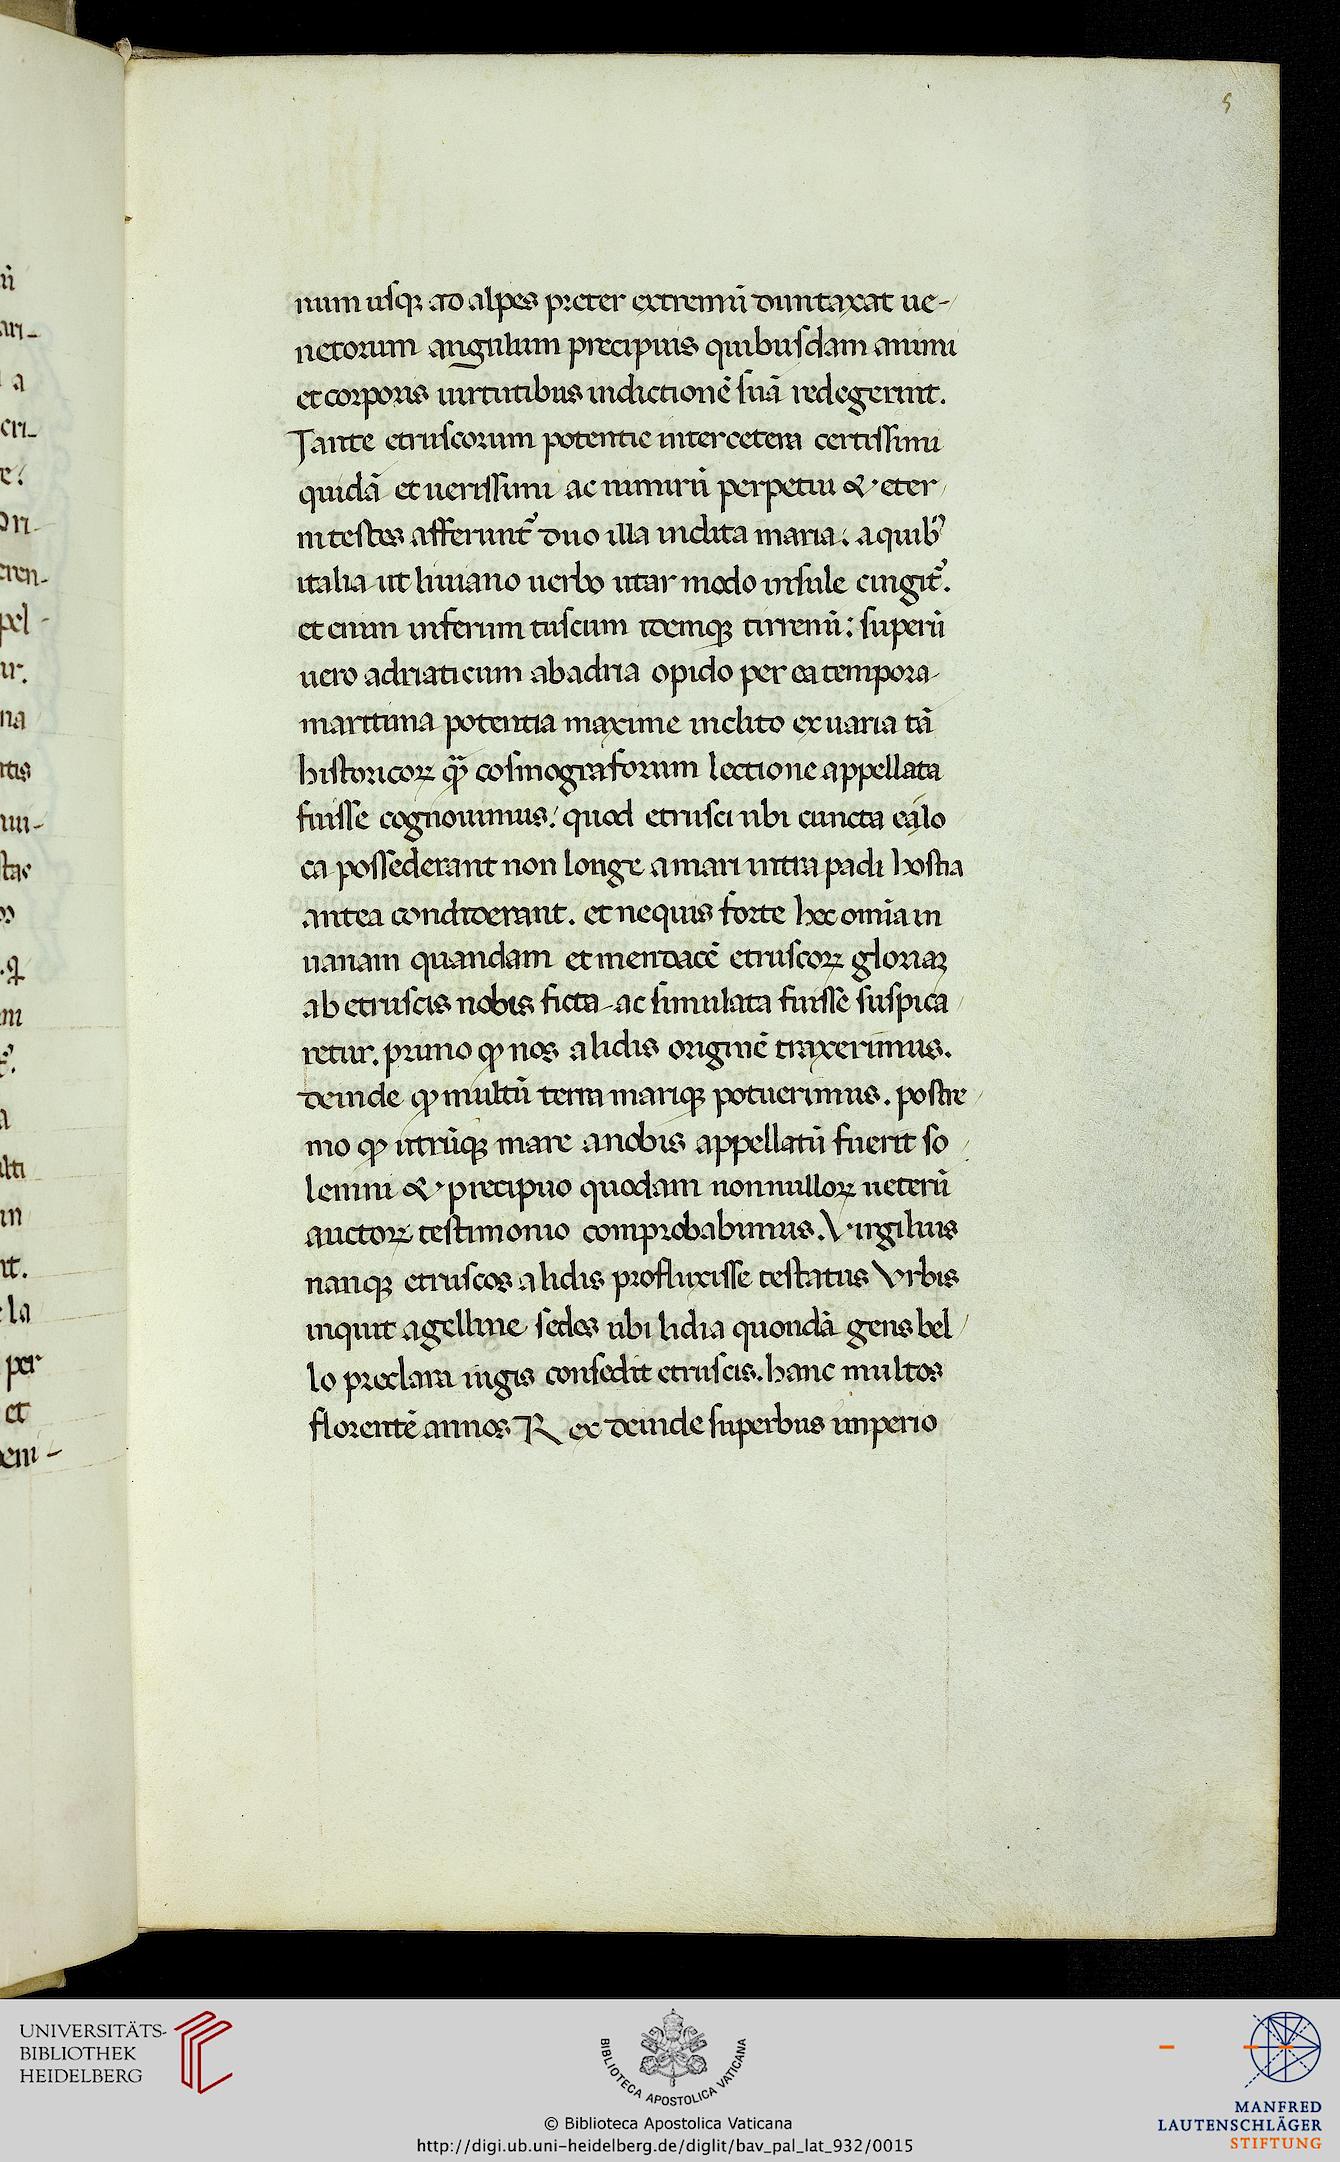 5
num usqꝫ ad alpes preter extremū duntaxat ue-
netorum angulum precipuis quibusdam animi
et corporis uirtutibus indictionē suā redegerint.
Tante etruscorum potentie inter cetera certissimi
quidā et uerissimi ac nimirū perpetui & eter
ni testes afferunt᷑ duo illa indita maria: a quibꝰ
italia ut liuiano uerbo utar modo insule cingit᷑.
et enim inferum tuscum idemqꝫ tirrenū: superū
uero adriaticum ab adria opido per ea tempora
maritima potentia maxime inclito ex uaria tā
historicoꝝ qꝫ̄ cosmograforum lectione appellata
fuisse cognouimus: quod etrusci ubi cuncta ea lo
ca possederant non longe a mari intra padi hostia
antea condiderant. et nequis forte hec omīa in
uanam quandam et mendacē etruscoꝝ gloriaꝫ
ab etruscis nobis ficta ac simulata fuisse suspica
retur. primo ꝙ nos a lidis originē traxerimus.
deinde ꝙ multū terra mariqꝫ potuerimus. postre
mo ꝙ utrūqꝫ mare a nobis appellatū fuerit so
lemni & precipuo quodam nonnulloꝝ ueterū
auctoꝝ testimonio comprobabimus. Virgilius
nanqꝫ etruscos a lidis profluxisse testatus Vrbis
inquit agelline sedes ubi lidia quondā gens bel
lo preclara iugis consedit etruscis. hanc multos
florentē annos Rex deinde superbus imperio
UNIVERSITÄTS-
BIBLIOTHEK
HEIDELBERG
BIBLIOTECA APOSTOLICA VATICANA
© Biblioteca Apostolica Vaticana
http://digi.ub.uni-heidelberg.de/diglit/bav_pal_lat_932/0015
MANFRED
LAUTENSCHLÄGER
STIFTUNG